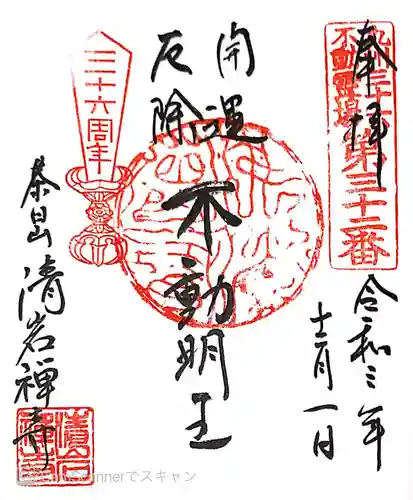 奉拝
九州三十六
不動霊場
第三十二番
令和三年
十二月一日
開運
厄除
不動明王
三十六周年
泰昌山
清岩禅寺
清岩
禅寺
CamScannerでスキャン